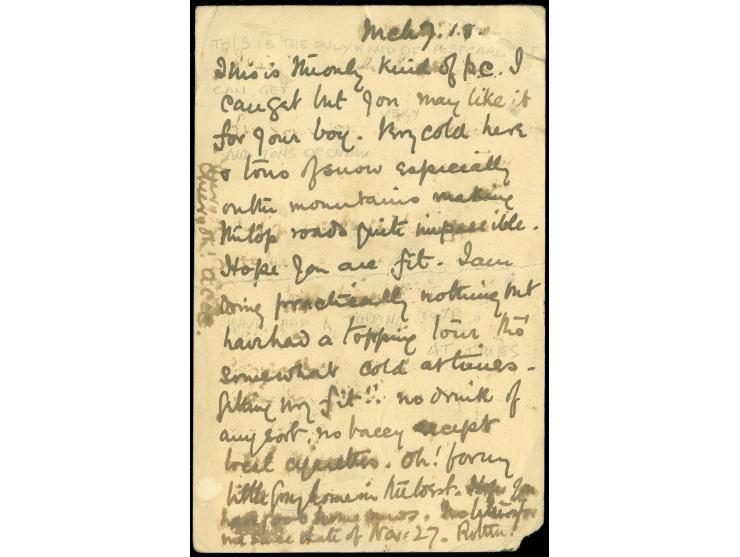 Mch 7. 18.
This is the only kind of p.c. I
can get but you may like it
for your boy. Very cold here
& tons of snow especially
on the mountains making
the top roads quite impassible.
Hope you are fit. I am
doing practically nothing but
have had a topping tour tho'
somewhat cold at times.
Getting very fit!! no drink of
any sort, no baccy except
local cigarettes. Oh! for my
little grey home in the West. Hope you
have some home news.
not since date of Nov: 27.
THIS IS THE ONLY KIND OF POSTCARD I
CAN GET
VERY
AND TONS OF SNOW
HAVE HAD A TOPPING TOUR
AT TIMES